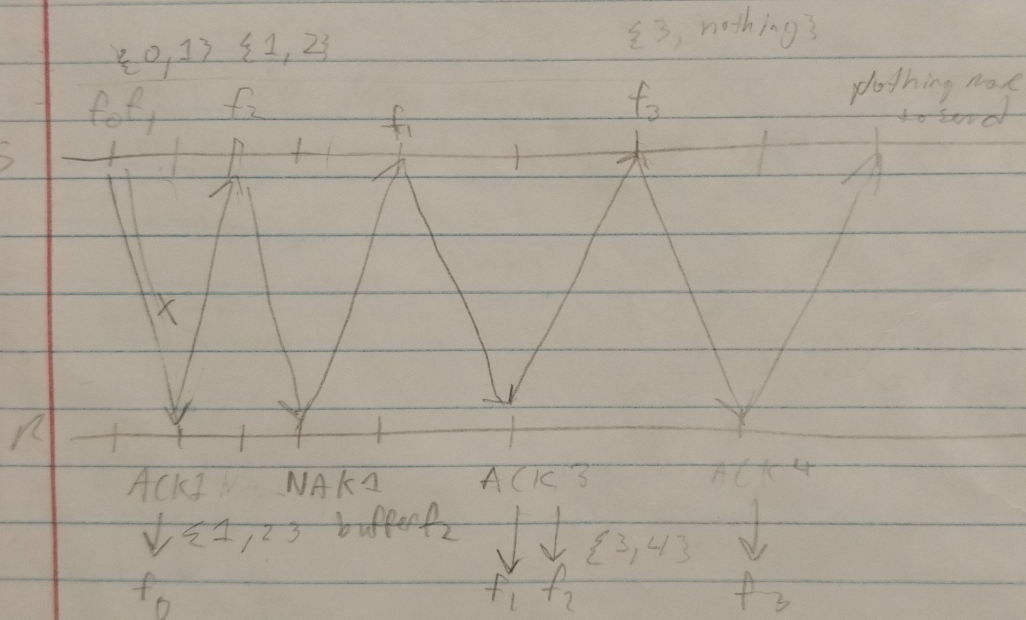 {0,1} {1,2} {3, nothing}
f0 f1 f2 f1 f3 Nothing more to send
S
X
R
ACK1 NAK1 ACK3 ACK4
{1,2} buffer f2 {3,4}
f0 f1 f2 f3